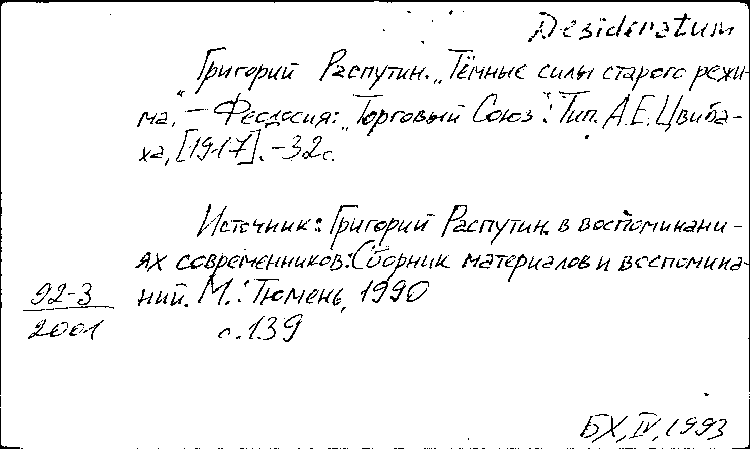 Desideratum
Григорий Распутин. „Тёмные силы старого режи-
ма." – Феодосия: „Торговый Союз": Тип. А.Е. Цвиба-
ха, [1917]. – 32 с.
Источник: Григорий Распутин в воспоминани-
ях современников: Сборник материалов и воспомина-
ний. М.: Тюмень, 1990
с. 139
92-3
2001
БХ, IV, 1993